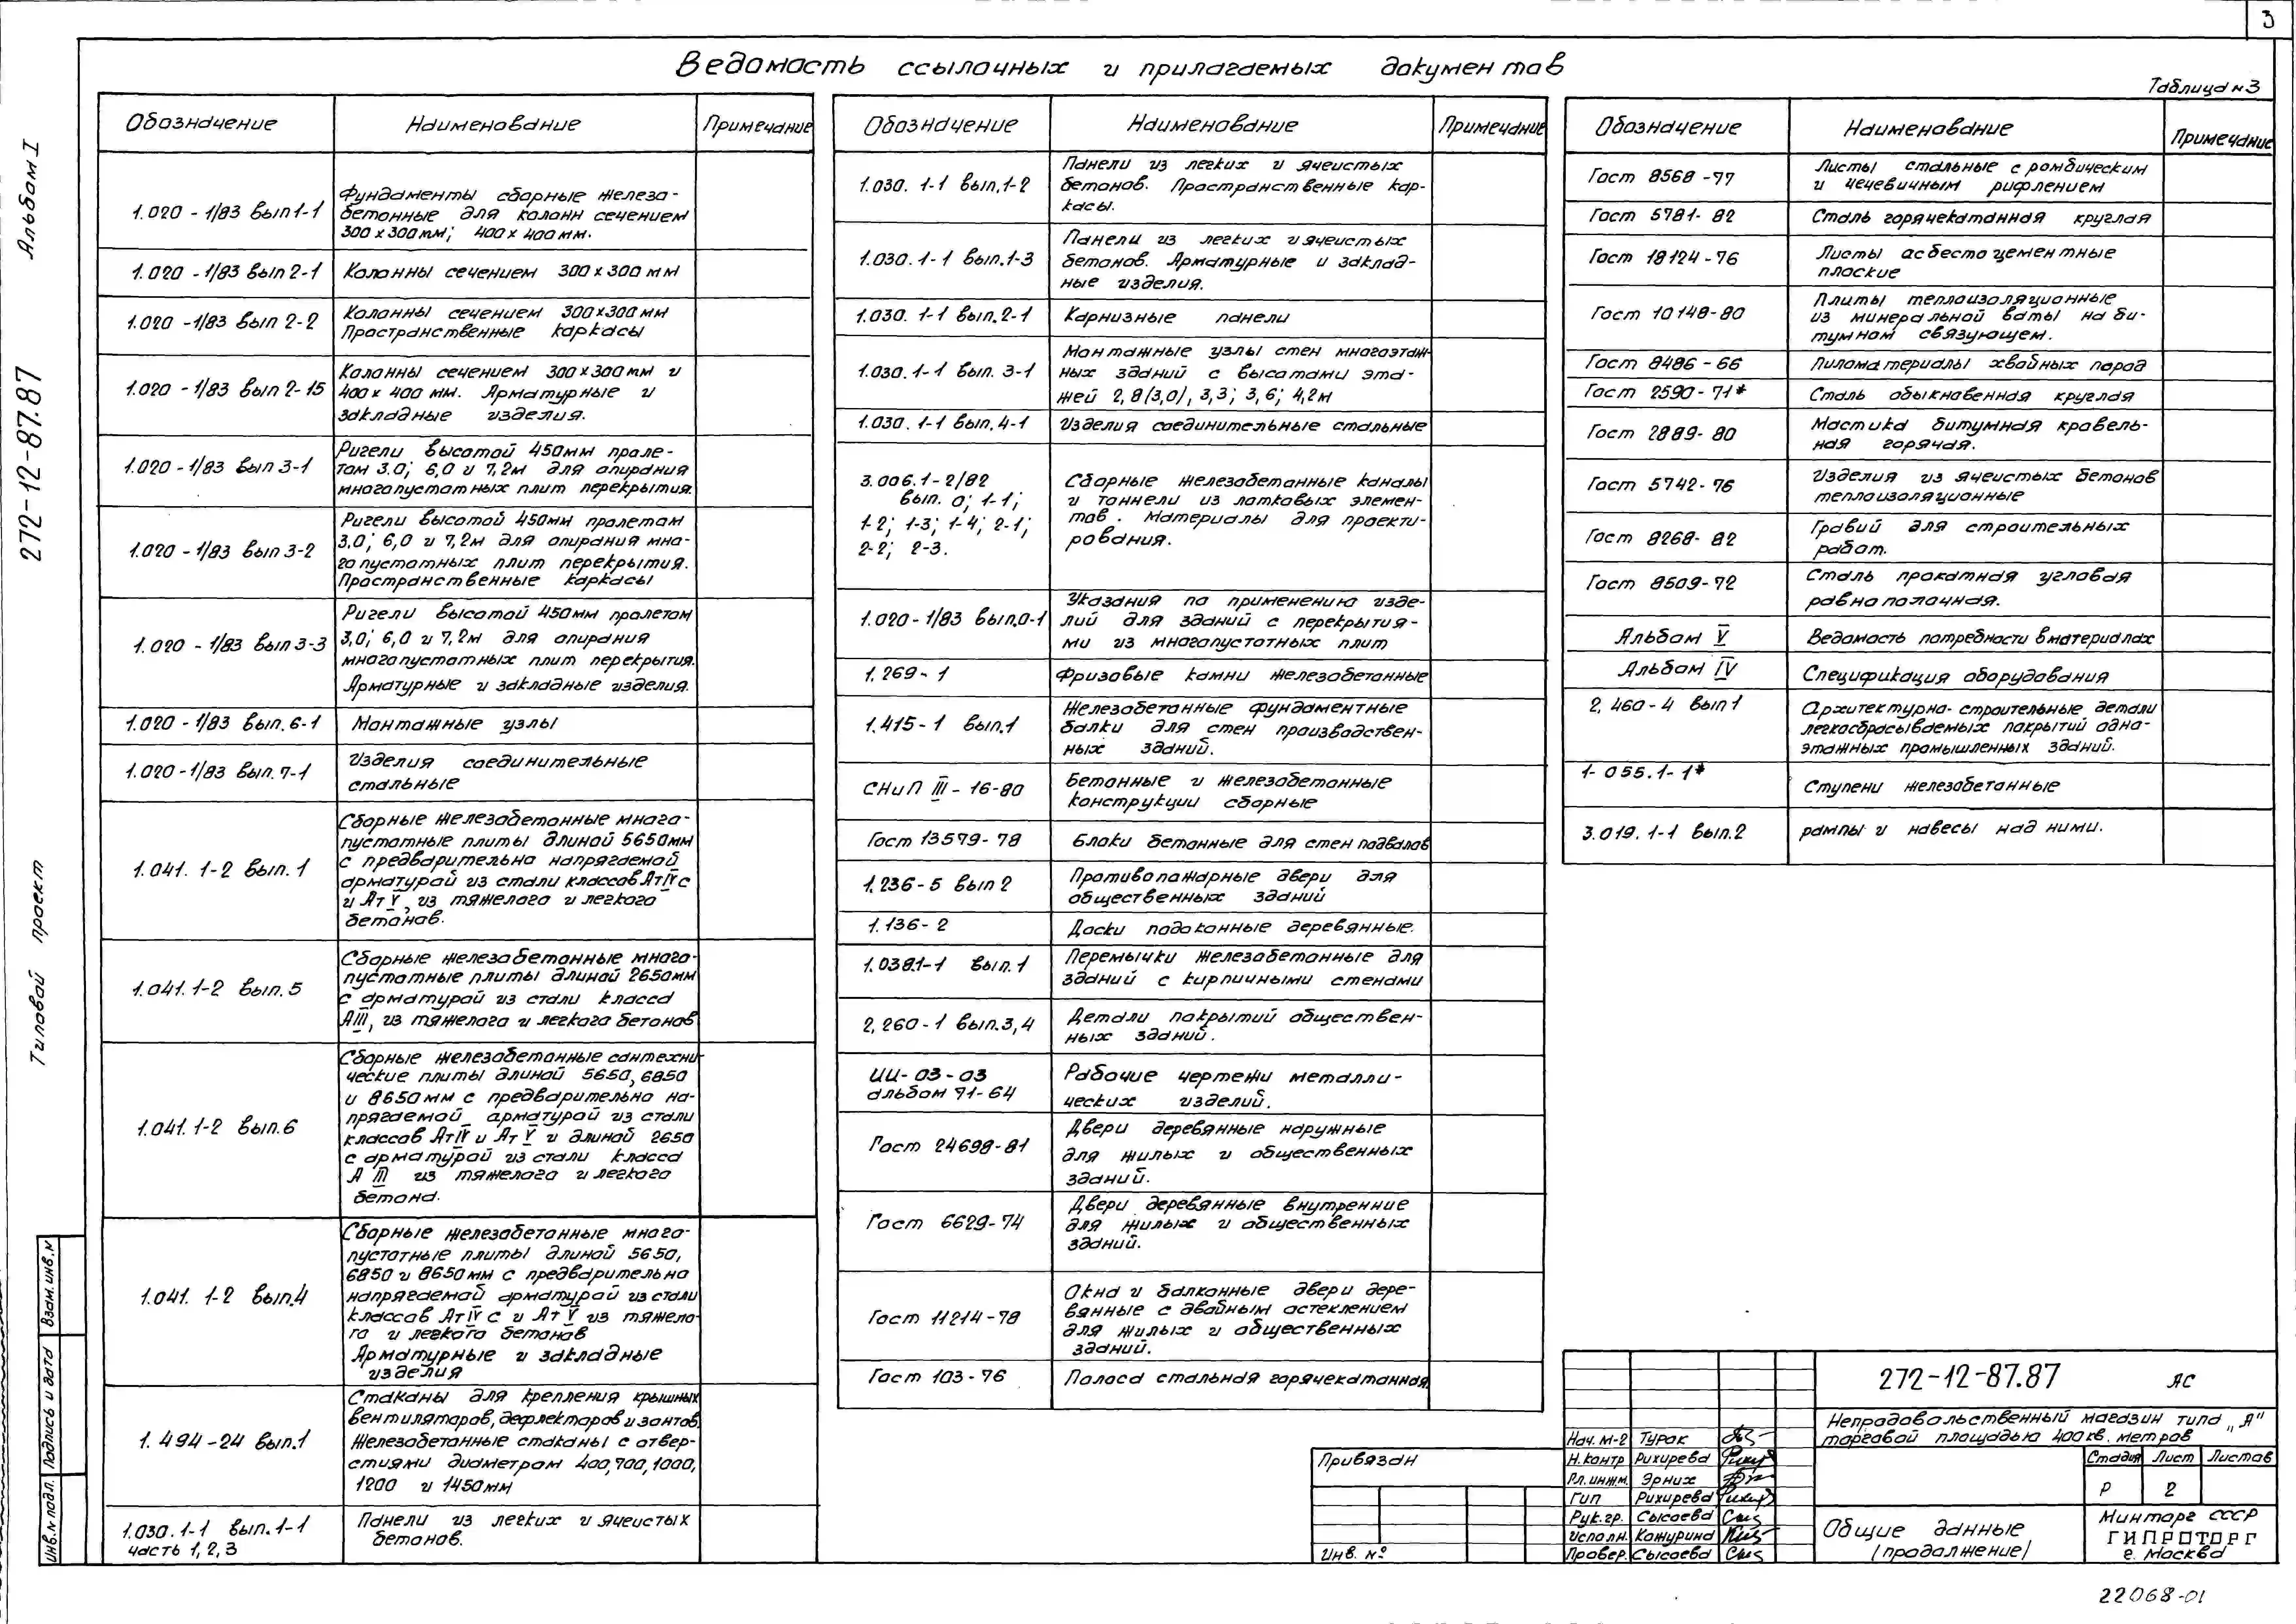 3
Ведомость ссылочных и прилагаемых документов
Таблица №3
Альбом I
272-12-87.87
Типовой проект
Обозначение Наименование Примечание
1.020 - 1/83 вып 1-1
Фундаменты сборные железо-
бетонные для колонн сечением
300 х 300 мм; 400 х 400 мм.
1.020 - 1/83 вып 2-1
Колонны сечением 300 х 300 мм
1.020 - 1/83 вып 2-2
Колонны сечением 300х300 мм
Пространственные каркасы
1.020 - 1/83 вып 2-15
Колонны сечением 300 х 300 мм и
400 х 400 мм. Арматурные и
закладные изделия.
1.020 - 1/83 вып 3-1
Ригели высотой 450мм проле-
том 3.0; 6,0 и 7,2м для опирания
многопустотных плит перекрытия.
1.020 - 1/83 вып 3-2
Ригели высотой 450мм пролетом
3.0; 6,0 и 7,2м для опирания мно-
гопустотных плит перекрытия.
Пространственные каркасы
1.020 - 1/83 вып 3-3
Ригели высотой 450мм пролетом
3,0; 6,0 и 7,2м для опирания
многопустотных плит перекрытия.
Арматурные и закладные изделия.
1.020 - 1/83 вып. 6-1
Монтажные узлы
1.020 - 1/83 вып. 7-1
Изделия соединительные
стальные
1.041. 1-2 вып. 1
Сборные железобетонные много-
пустотные плиты длиной 5650мм
с предварительно напрягаемой
арматурой из стали классов Ат IV с
и Ат V, из тяжелого и легкого
бетонов.
1.041. 1-2 вып. 5
Сборные железобетонные много-
пустотные плиты длиной 2650мм
с арматурой из стали класса
А III, из тяжелого и легкого бетонов
1.041. 1-2 вып. 6
Сборные железобетонные сантехни-
ческие плиты длиной 5650, 6850
и 8650 мм с предварительно на-
прягаемой арматурой из стали
классов Ат IV и Ат V и длиной 2650
с арматурой из стали класса
А III из тяжелого и легкого
бетона.
1.041. 1-2 вып.4
Сборные железобетонные много-
пустотные плиты длиной 5650,
6850 и 8650мм с предварительно
напрягаемой арматурой из стали
классов Ат IV с и Ат V из тяжело-
го и легкого бетонов
Арматурные и закладные
изделия
1. 494-24 вып.1
Стаканы для крепления крышных
вентиляторов, дефлекторов и зонтов.
Железобетонные стаканы с отвер-
стиями диаметром 400, 700, 1000,
1200 и 1450мм
1.030. 1-1 вып. 1-1
часть 1, 2, 3
Панели из легких и ячеистых
бетонов.
Обозначение Наименование Примечание
1.030. 1-1 вып. 1-2
Панели из легких и ячеистых
бетонов. Пространственные кар-
касы.
1.030. 1-1 вып. 1-3
Панели из легких и ячеистых
бетонов. Арматурные и заклад-
ные изделия.
1.030. 1-1 вып. 2-1
Карнизные панели
1.030. 1-1 вып. 3-1
Монтажные узлы стен многоэтаж-
ных зданий с высотами эта-
жей 2,8 (3,0), 3,3; 3,6; 4,2м
1.030. 1-1 вып. 4-1
Изделия соединительные стальные
3.006.1-2/82
вып. 0; 1-1;
1-2; 1-3; 1-4; 2-1;
2-2; 2-3.
Сборные железобетонные каналы
и тоннели из лотковых элемен-
тов. Материалы для проекти-
рования.
1.020-1/83 вып.0-1
Указания по применению изде-
лий для зданий с перекрытия-
ми из многопустотных плит
1.269-1
Фризовые камни железобетонные
1.415-1 вып.1
Железобетонные фундаментные
балки для стен производствен-
ных зданий.
СНиП III - 16-80
Бетонные и железобетонные
конструкции сборные
Гост 13579-78
Блоки бетонные для стен подвалов
1.236-5 вып 2
Противопожарные двери для
общественных зданий
1.136-2
Доски подоконные деревянные.
1.038.1-1 вып. 1
Перемычки железобетонные для
зданий с кирпичными стенами
2.260-1 вып.3,4
Детали покрытий обществен-
ных зданий.
ИИ-03-03
альбом 71-64
Рабочие чертежи металли-
ческих изделий.
Гост 24698-81
Двери деревянные наружные
для жилых и общественных
зданий.
Гост 6629-74
Двери деревянные внутренние
для жилых и общественных
зданий.
Гост 11214-78
Окна и балконные двери дере-
вянные с двойным остеклением
для жилых и общественных
зданий.
Гост 103-76
Полоса стальная горячекатанная
Обозначение Наименование Примечание
Гост 8568-77
Листы стальные с ромбическим
и чечевичным рифлением
Гост 5781-82
Сталь горячекатанная круглая
Гост 18124-76
Листы асбестоцементные
плоские
Гост 10140-80
Плиты теплоизоляционные
из минеральной ваты на би-
тумном связующем.
Гост 8486-66
Пиломатериалы хвойных пород
Гост 2590-71*
Сталь обыкновенная круглая
Гост 2889-80
Мастика битумная кровель-
ная горячая.
Гост 5742-76
Изделия из ячеистых бетонов
теплоизоляционные
Гост 8268-82
Гравий для строительных
работ.
Гост 8509-72
Сталь прокатная угловая
равнополочная.
Альбом V
Ведомость потребности в материалах
Альбом IV
Спецификация оборудования
2.460-4 вып 1
Архитектурно-строительные детали
легкосбрасываемых покрытий одно-
этажных промышленных зданий.
1-055.1-1*
Ступени железобетонные
3.019.1-1 вып.2
рампы и навесы над ними.
Взам. инв. №
Подпись и дата
Инв. № подл.
Привязан
Инв. №
Нач. М-2 Турок
Н. контр Рихирева
Гл. инжм. Эрних
Гип Рихирева
Рук. гр. Сысоева
Исполн. Кожурина
Провер. Сысоева
272-12-87.87 АС
Непродовольственный магазин типа „А"
торговой площадью 400 кв. метров
Стадия Лист Листов
Р 2
Общие данные
(продолжение)
Минторг СССР
ГИПРОТОРГ
г. Москва
22068-01